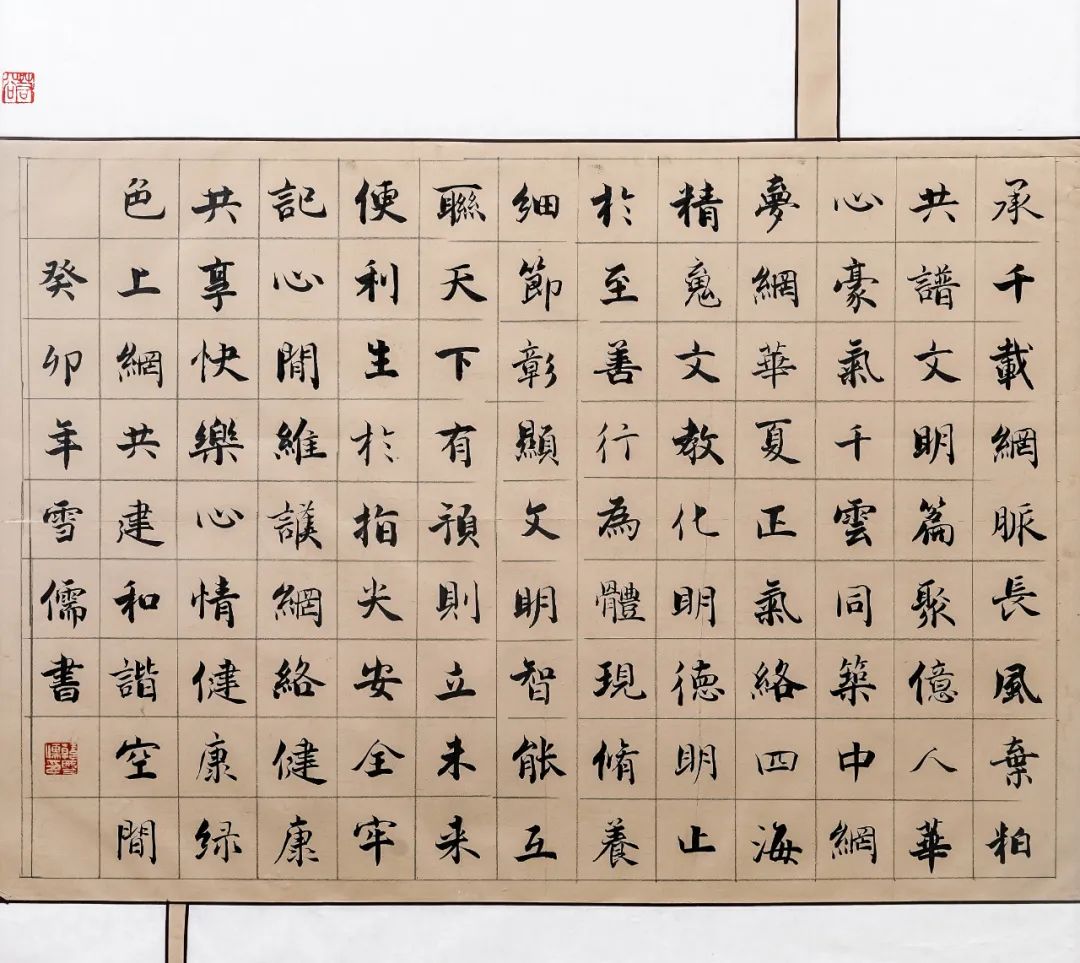 承千載網脈長風棄粕
共譜文明篇聚億人華
心豪氣千雲同築中網
夢網華夏正氣絡四海
精魂文教化明德明止
於至善行為體現脩養
細節彰顯文明智能互
聯天下有預則立未来
便利生於指尖安全牢
記心間維護網絡健康
共享快樂心情健康绿
色上網共建和諧空間
癸卯年雪儒書